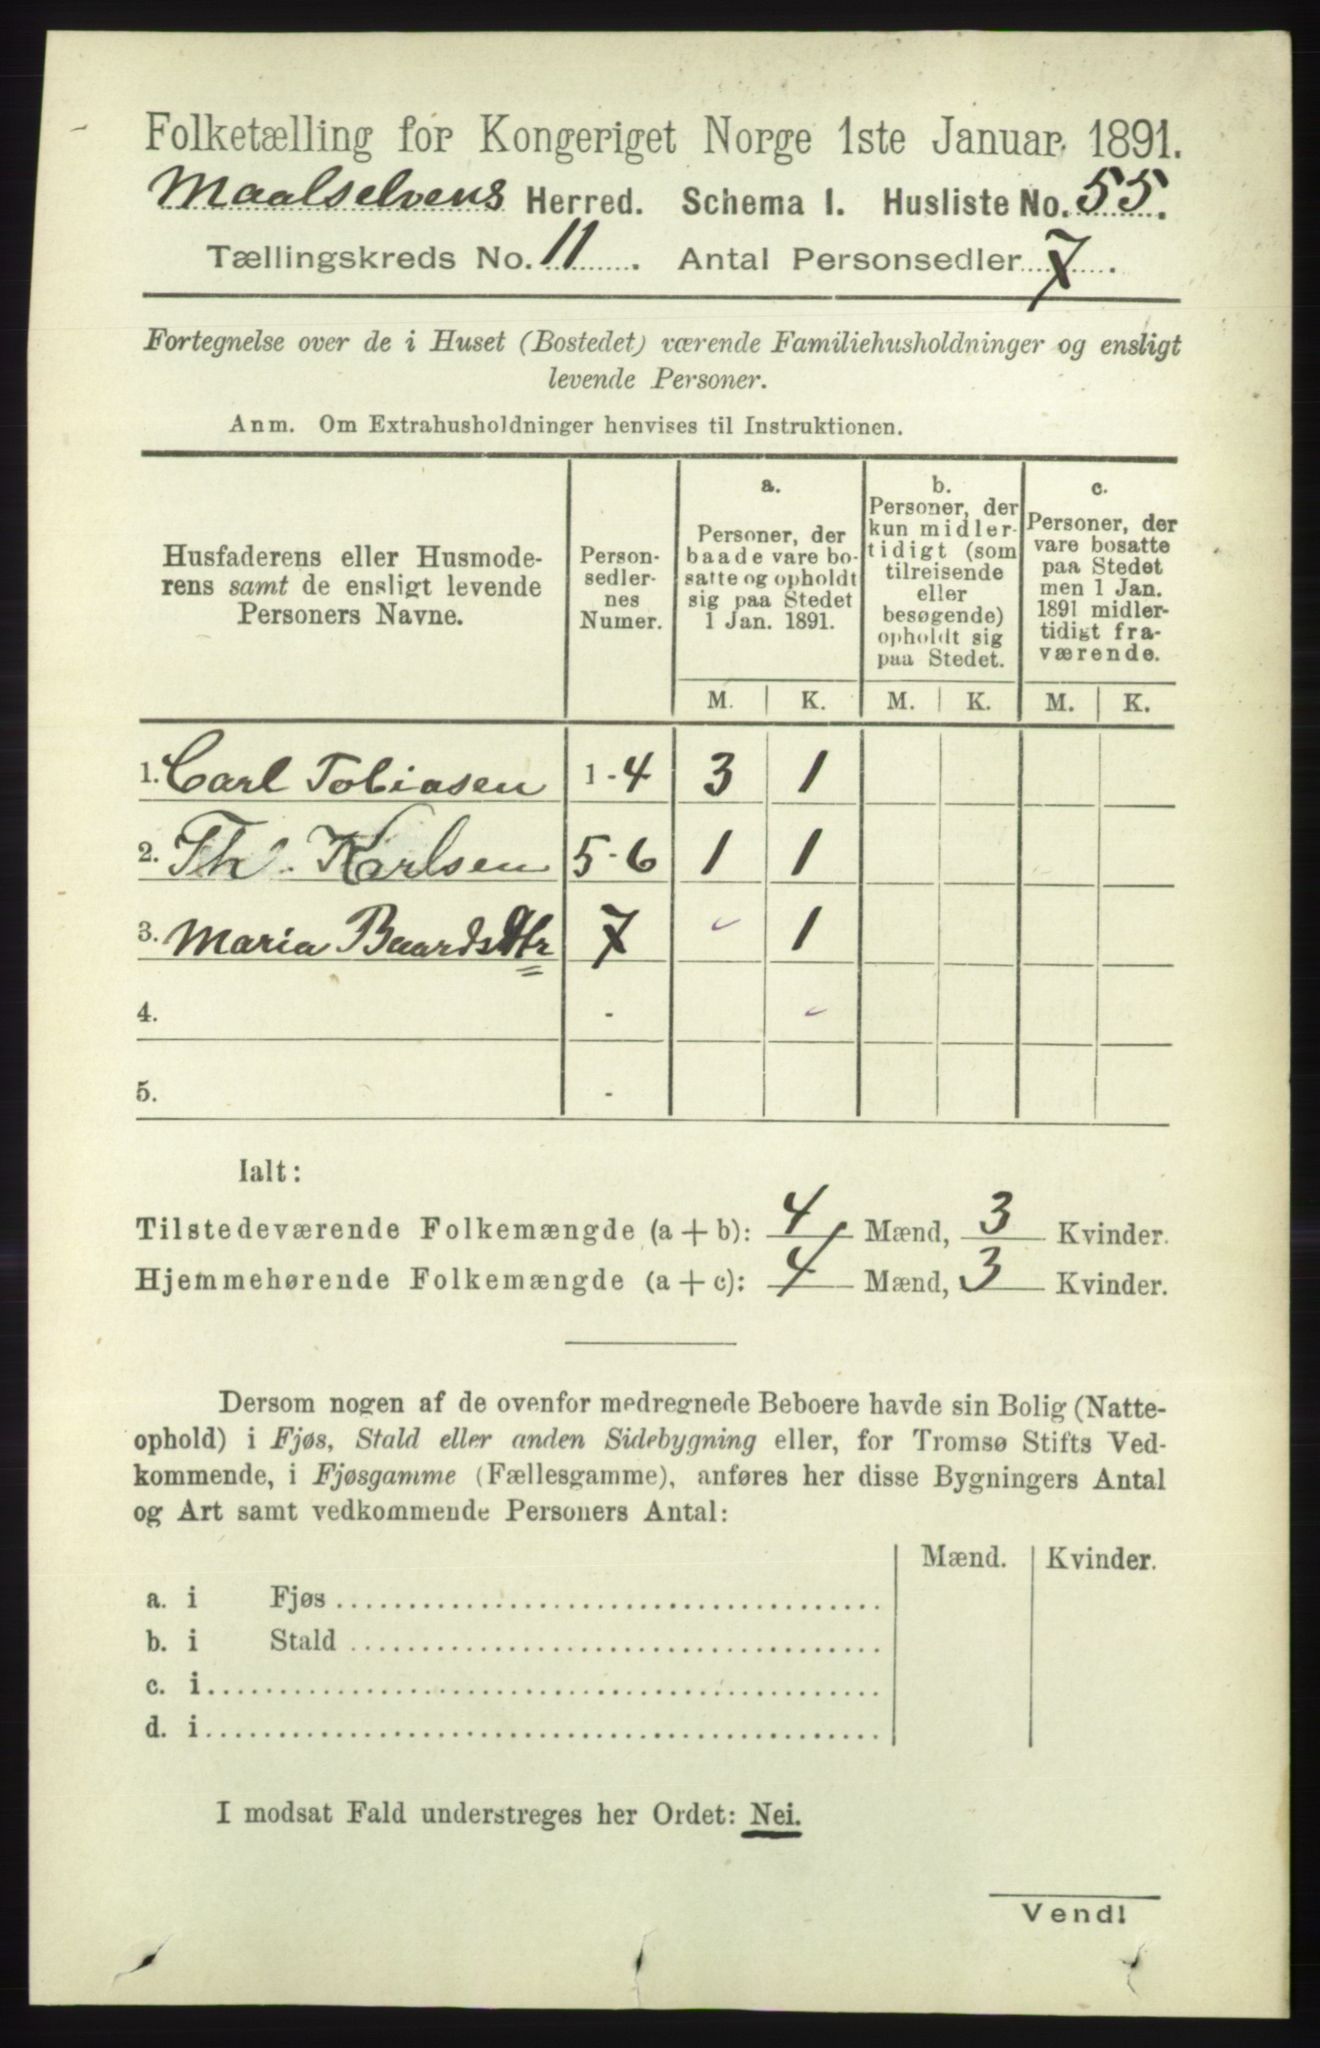 Folketælling for Kongeriget Norge 1ste Januar 1891.
Maalselvens Herred. Schema 1. Husliste No. 55.
Tællingskreds No. 11. Antal Personsedler 7.
Fortegnelse over de i Huset (Bostedet) værende Familiehusholdninger og ensligt
levende Personer.
Anm. Om Extrahusholdninger henvises til Instruktionen.
Husfaderens eller Husmode-
rens samt de ensligt levende
Personers Navne.
Person-
sedler-
nes
Numer.
a.
Personer, der
baade vare bo-
satte og opholdt
sig paa Stedet
1 Jan. 1891.
b.
Personer, der
kun midler-
tidigt (som
tilreisende
eller
besøgende)
opholdt sig
paa Stedet.
c.
Personer, der
vare bosatte
paa Stedet
men 1 Jan.
1891 midler-
tidigt fra-
værende.
M. K. M. K. M. K.
1. Carl Tobiasen 1-4 3 1
2. Th. Karlsen 5-6 1 1
3. Maria Baardsdtr 7 - 1
4. - -
5. -
Ialt:
Tilstedeværende Folkemængde (a + b): 4 Mænd, 3 Kvinder.
Hjemmehørende Folkemængde (a + c): 4 Mænd, 3 Kvinder.
Dersom nogen af de ovenfor medregnede Beboere havde sin Bolig (Natte-
ophold) i Fjøs, Stald eller anden Sidebygning eller, for Tromsø Stifts Ved-
kommende, i Fjøsgamme (Fællesgamme), anføres her disse Bygningers Antal
og Art samt vedkommende Personers Antal:
Mænd. Kvinder.
a. i Fjøs
b. i Stald
c. i
d. i
I modsat Fald understreges her Ordet: Nei.
Vend!